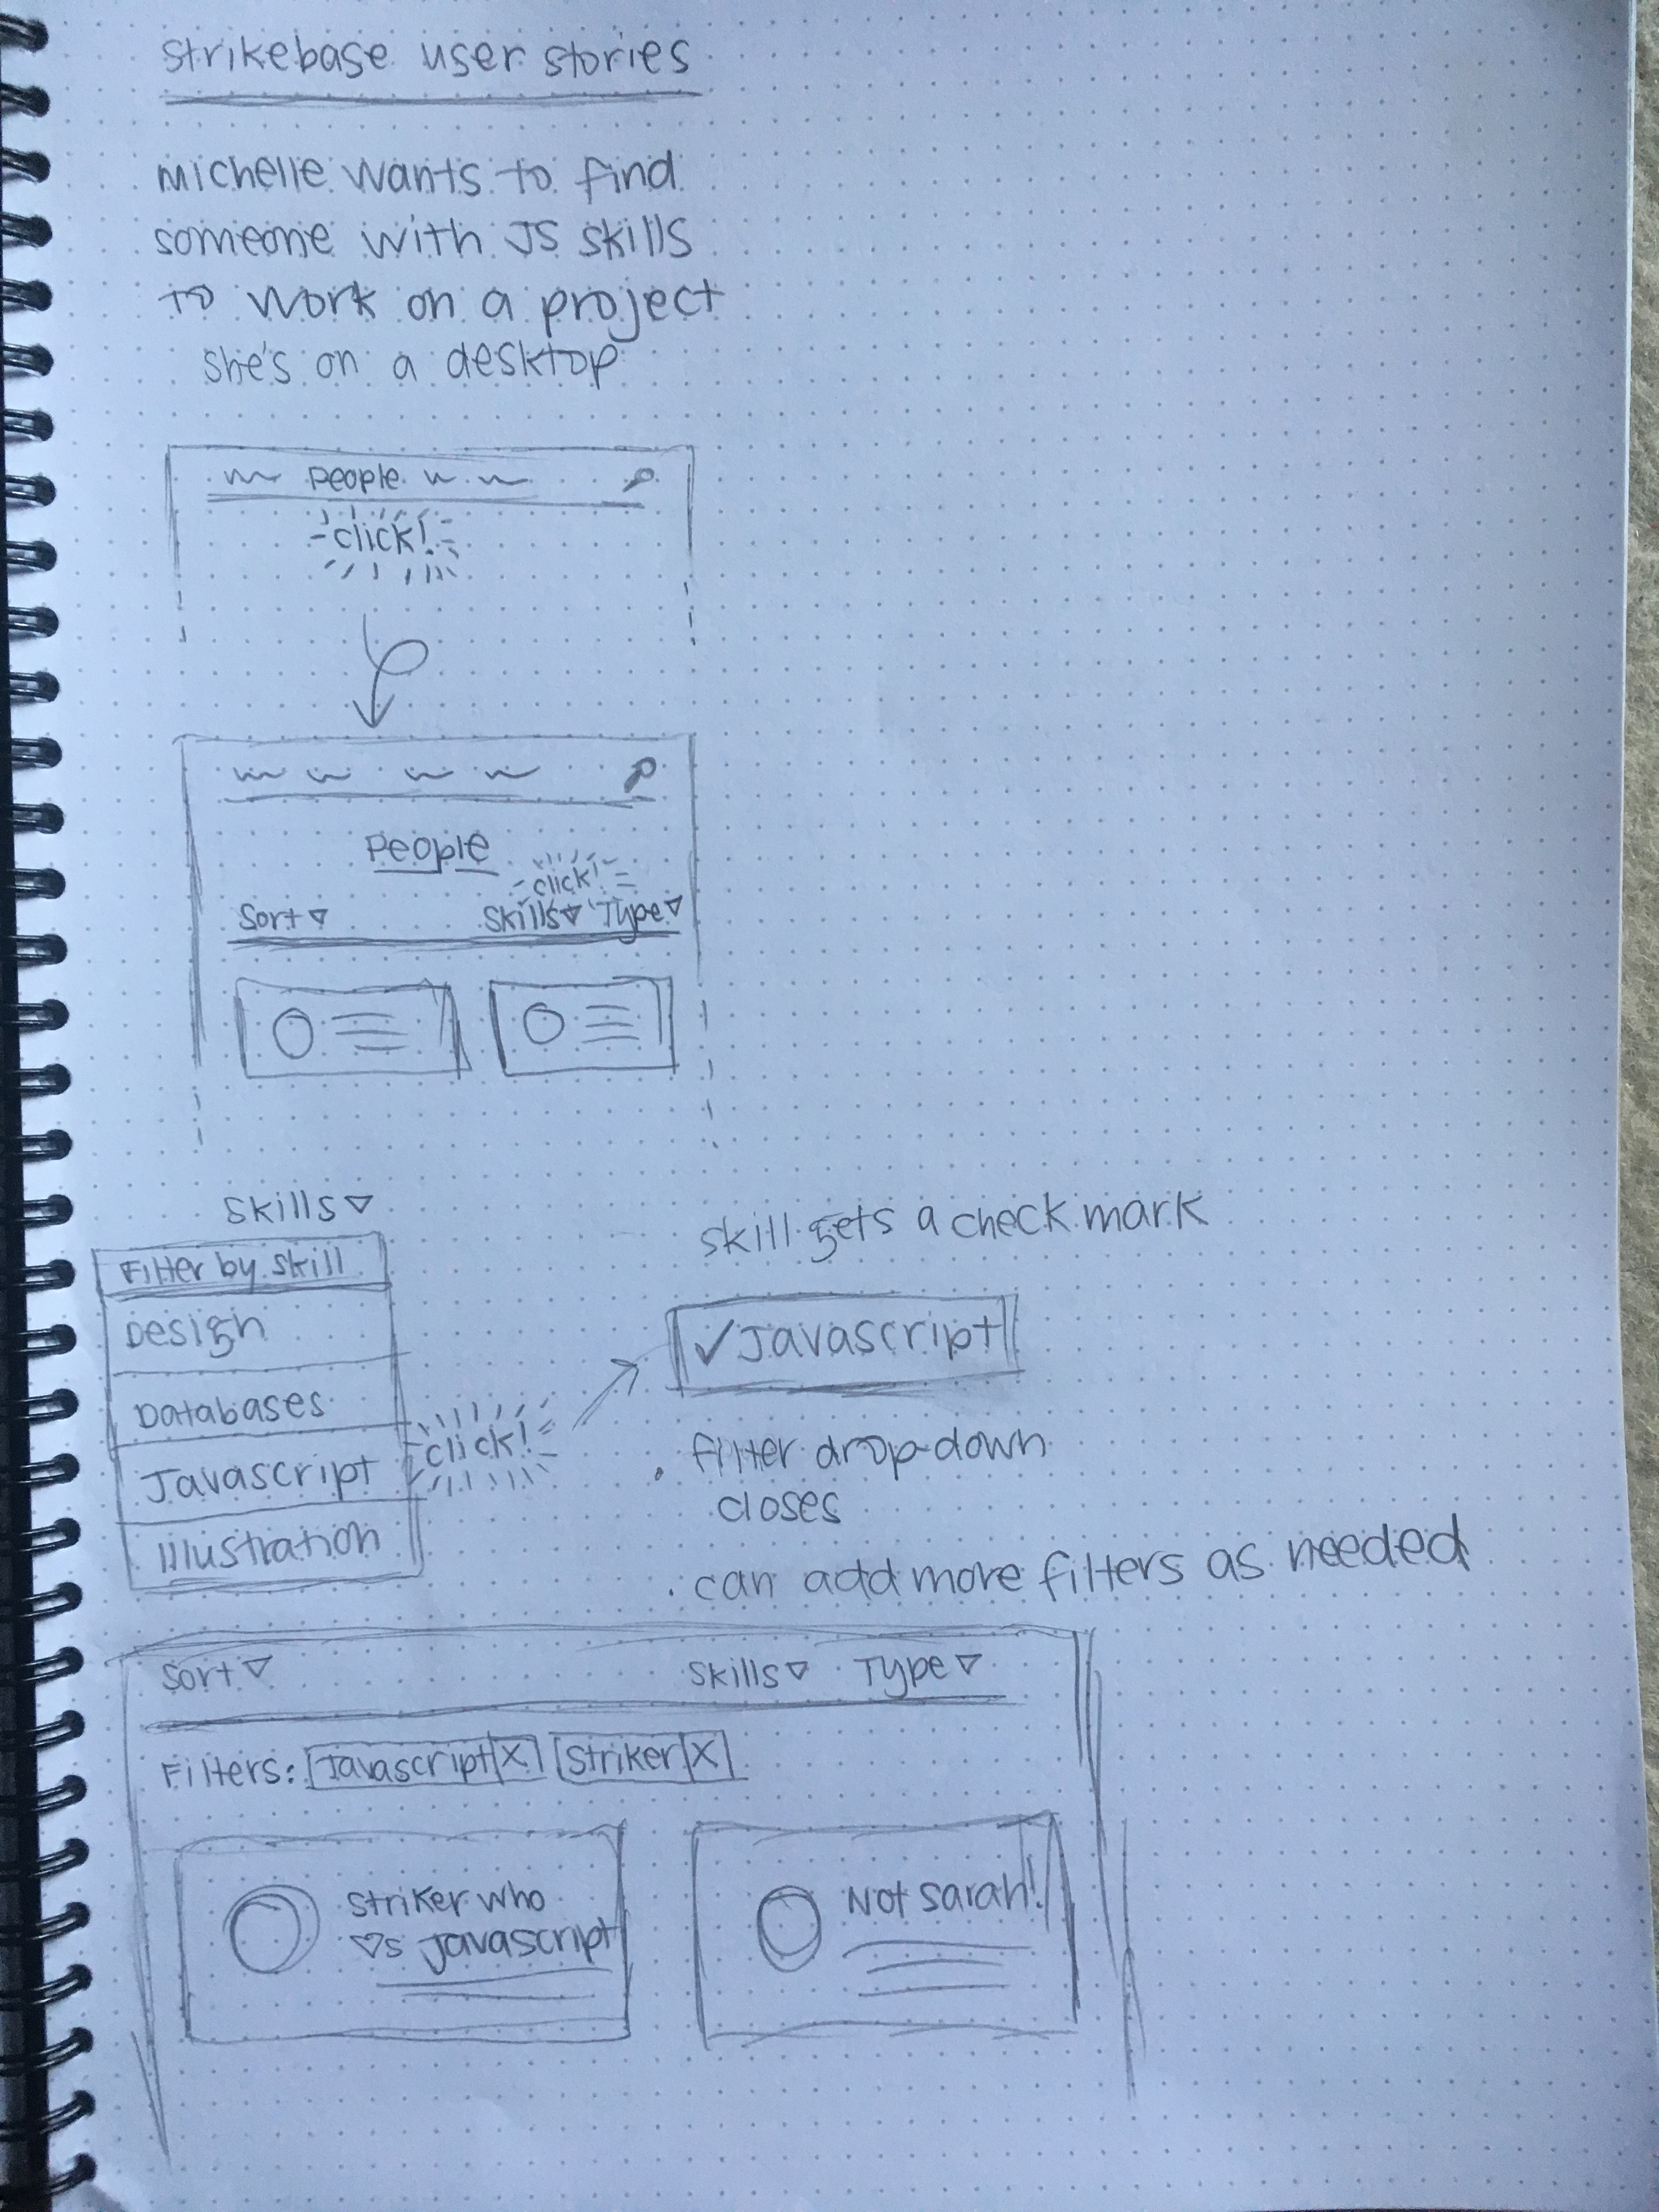 strikebase user stories
michelle wants to find
someone with JS skills
to work on a project
she's on a desktop
People
click!
People
click!
Sort ▽ Skills ▽ Type ▽
Skills ▽
Filter by skill
Design
Databases
Javascript
Illustration
click!
skill gets a check mark
✓ Javascript
. filter drop-down
closes
. can add more filters as needed
Sort ▽ Skills ▽ Type ▽
Filters: Javascript X Striker X
Striker who
♡s javascript
Not sarah!